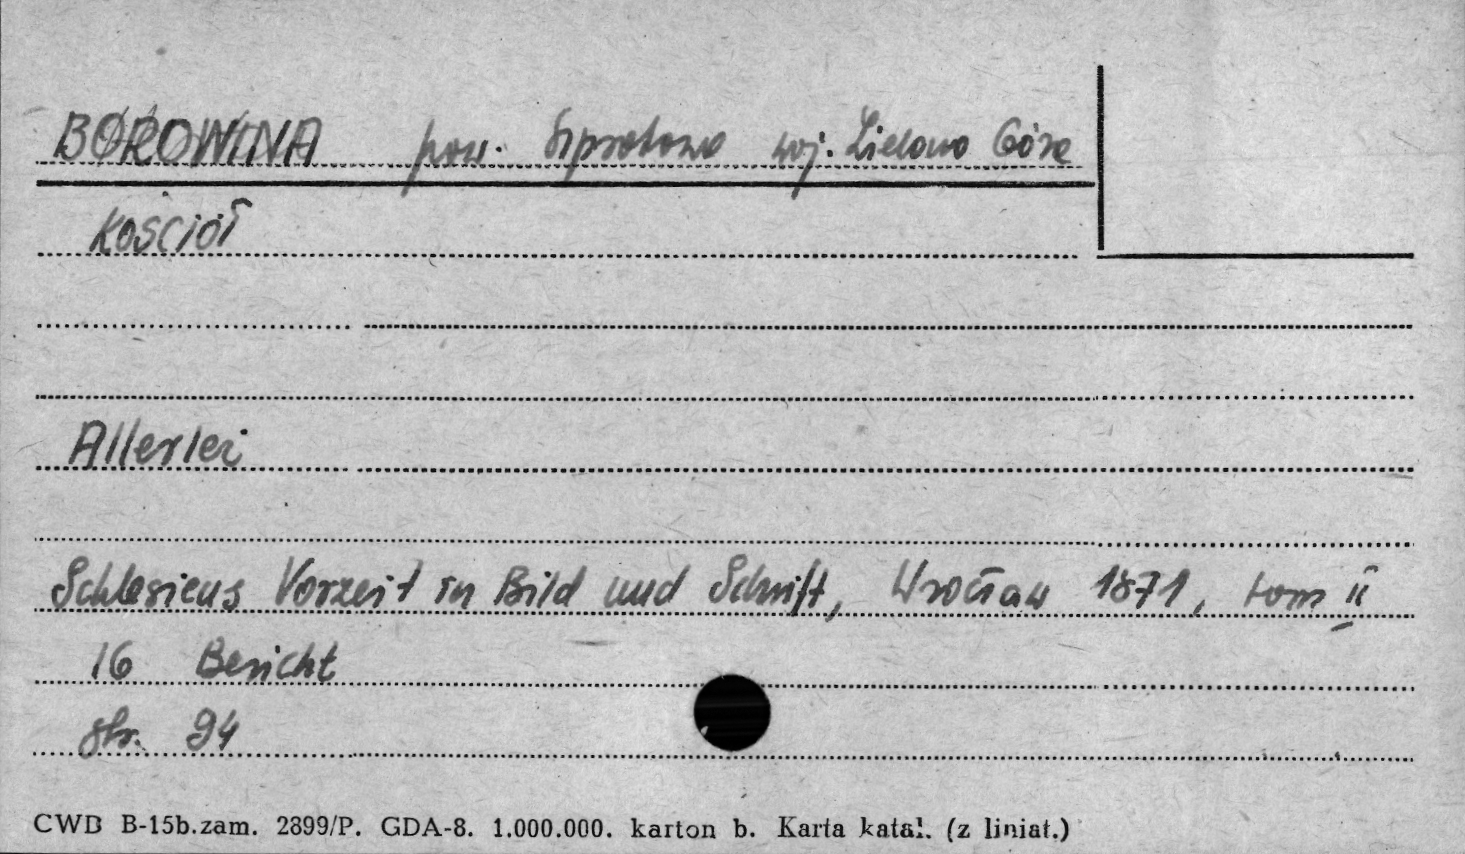 BOROWINA pow. Szprotawa woj. Zielona Góra
Kościół
Allerlei
Schlesiens Vorzeit in Bild und Schrift, Wrocław 1871, tom II
16 Bericht
str. 94
CWD B-15b.zam. 2899/P. GDA-8. 1.000.000. karton b. Karta katal. (z liniat.)